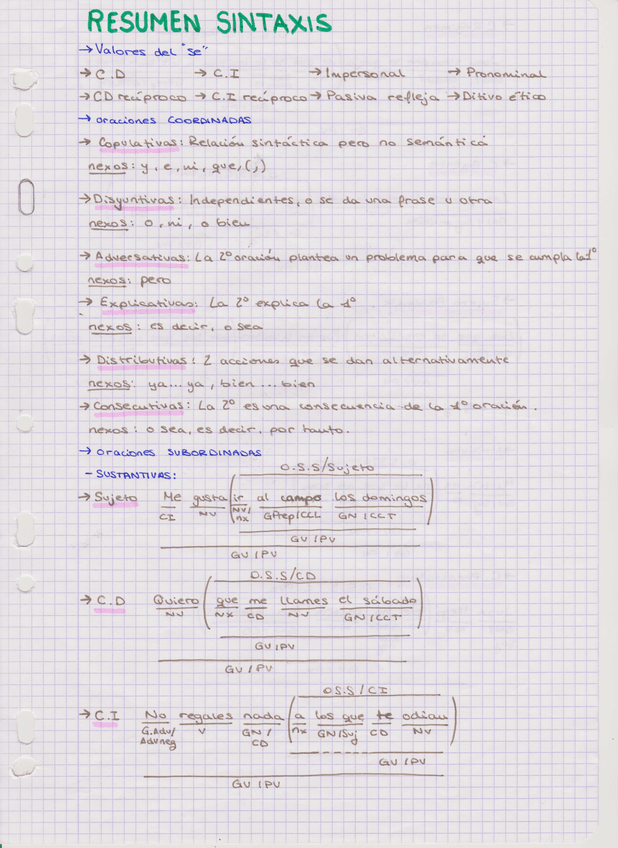 RESUMEN SINTAXIS
→ Valores del "se"
→ C.D → C.I → Impersonal → Pronominal
→ CD recíproco → C.I recíproco → Pasiva refleja → Ditivo ético
→ oraciones COORDINADAS
→ Copulativas: Relación sintáctica pero no semántica
nexos: y, e, ni, que, (,)
→ Disyuntivas: Independientes, o se da una frase u otra
nexos: o, ni, o bien
→ Adversativas: La 2º oración plantea un problema para que se cumpla la 1º
nexos: pero
→ Explicativas: La 2º explica la 1º
nexos: es decir, o sea
→ Distributivas: 2 acciones que se dan alternativamente
nexos: ya...ya, bien...bien
→ Consecutivas: La 2º es una consecuencia de la 1º oración.
nexos: o sea, es decir, por tanto.
→ oraciones SUBORDINADAS
- SUSTANTIVAS:
O.S.S/Sujeto
→ Sujeto Me gusta (ir al campo los domingos)
CI NV NV/nx GPrep/CCL GN/CCT
GV/PV
GV/PV
O.S.S/CD
→ C.D Quiero (que me llames el sábado)
NV NX CD NV GN/CCT
GV/PV
GV/PV
O.S.S/CI
→ C.I No regales nada (a los que te odian)
G.Adv/Adv neg V GN/CD nx GN/Suj CD NV
GV/PV
GV/PV